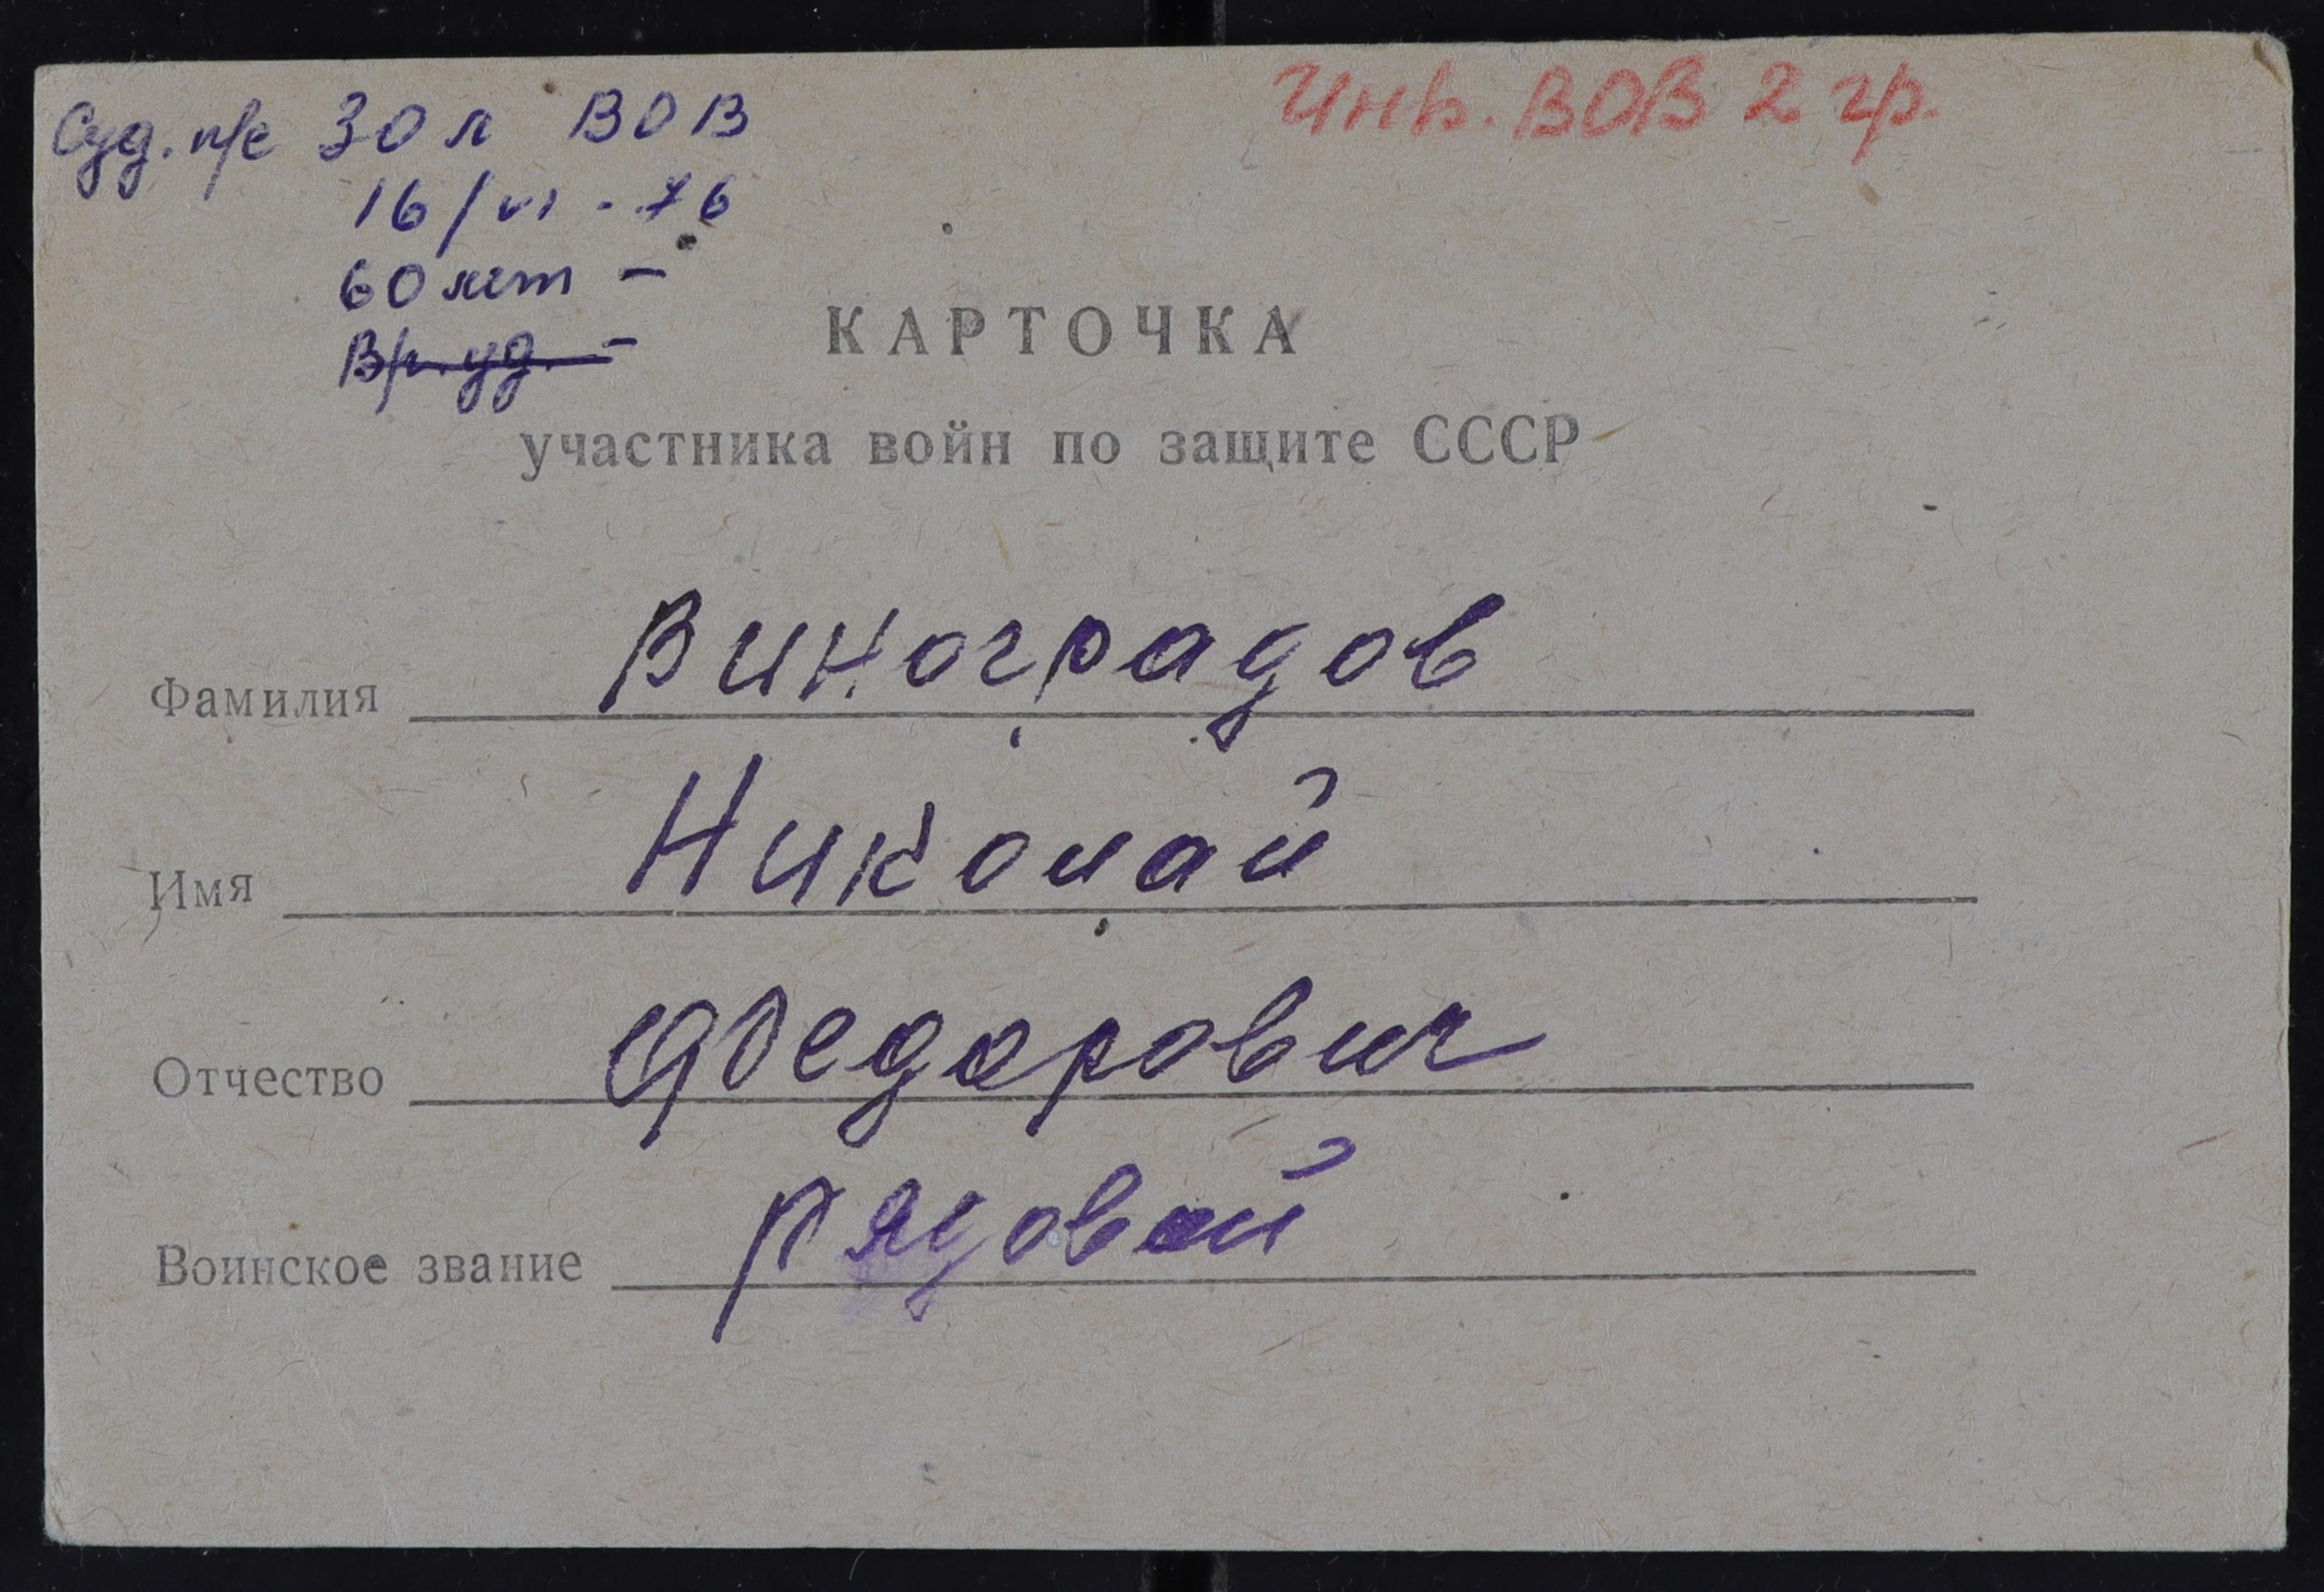 Инв. ВОВ 2 гр.
30 л ВОВ
16/VI - 76
60 лет -
Вр. уд. -
КАРТОЧКА
участника войн по защите СССР
Фамилия Виноградов
Имя Николай
Отчество Федорович
Воинское звание Рядовой